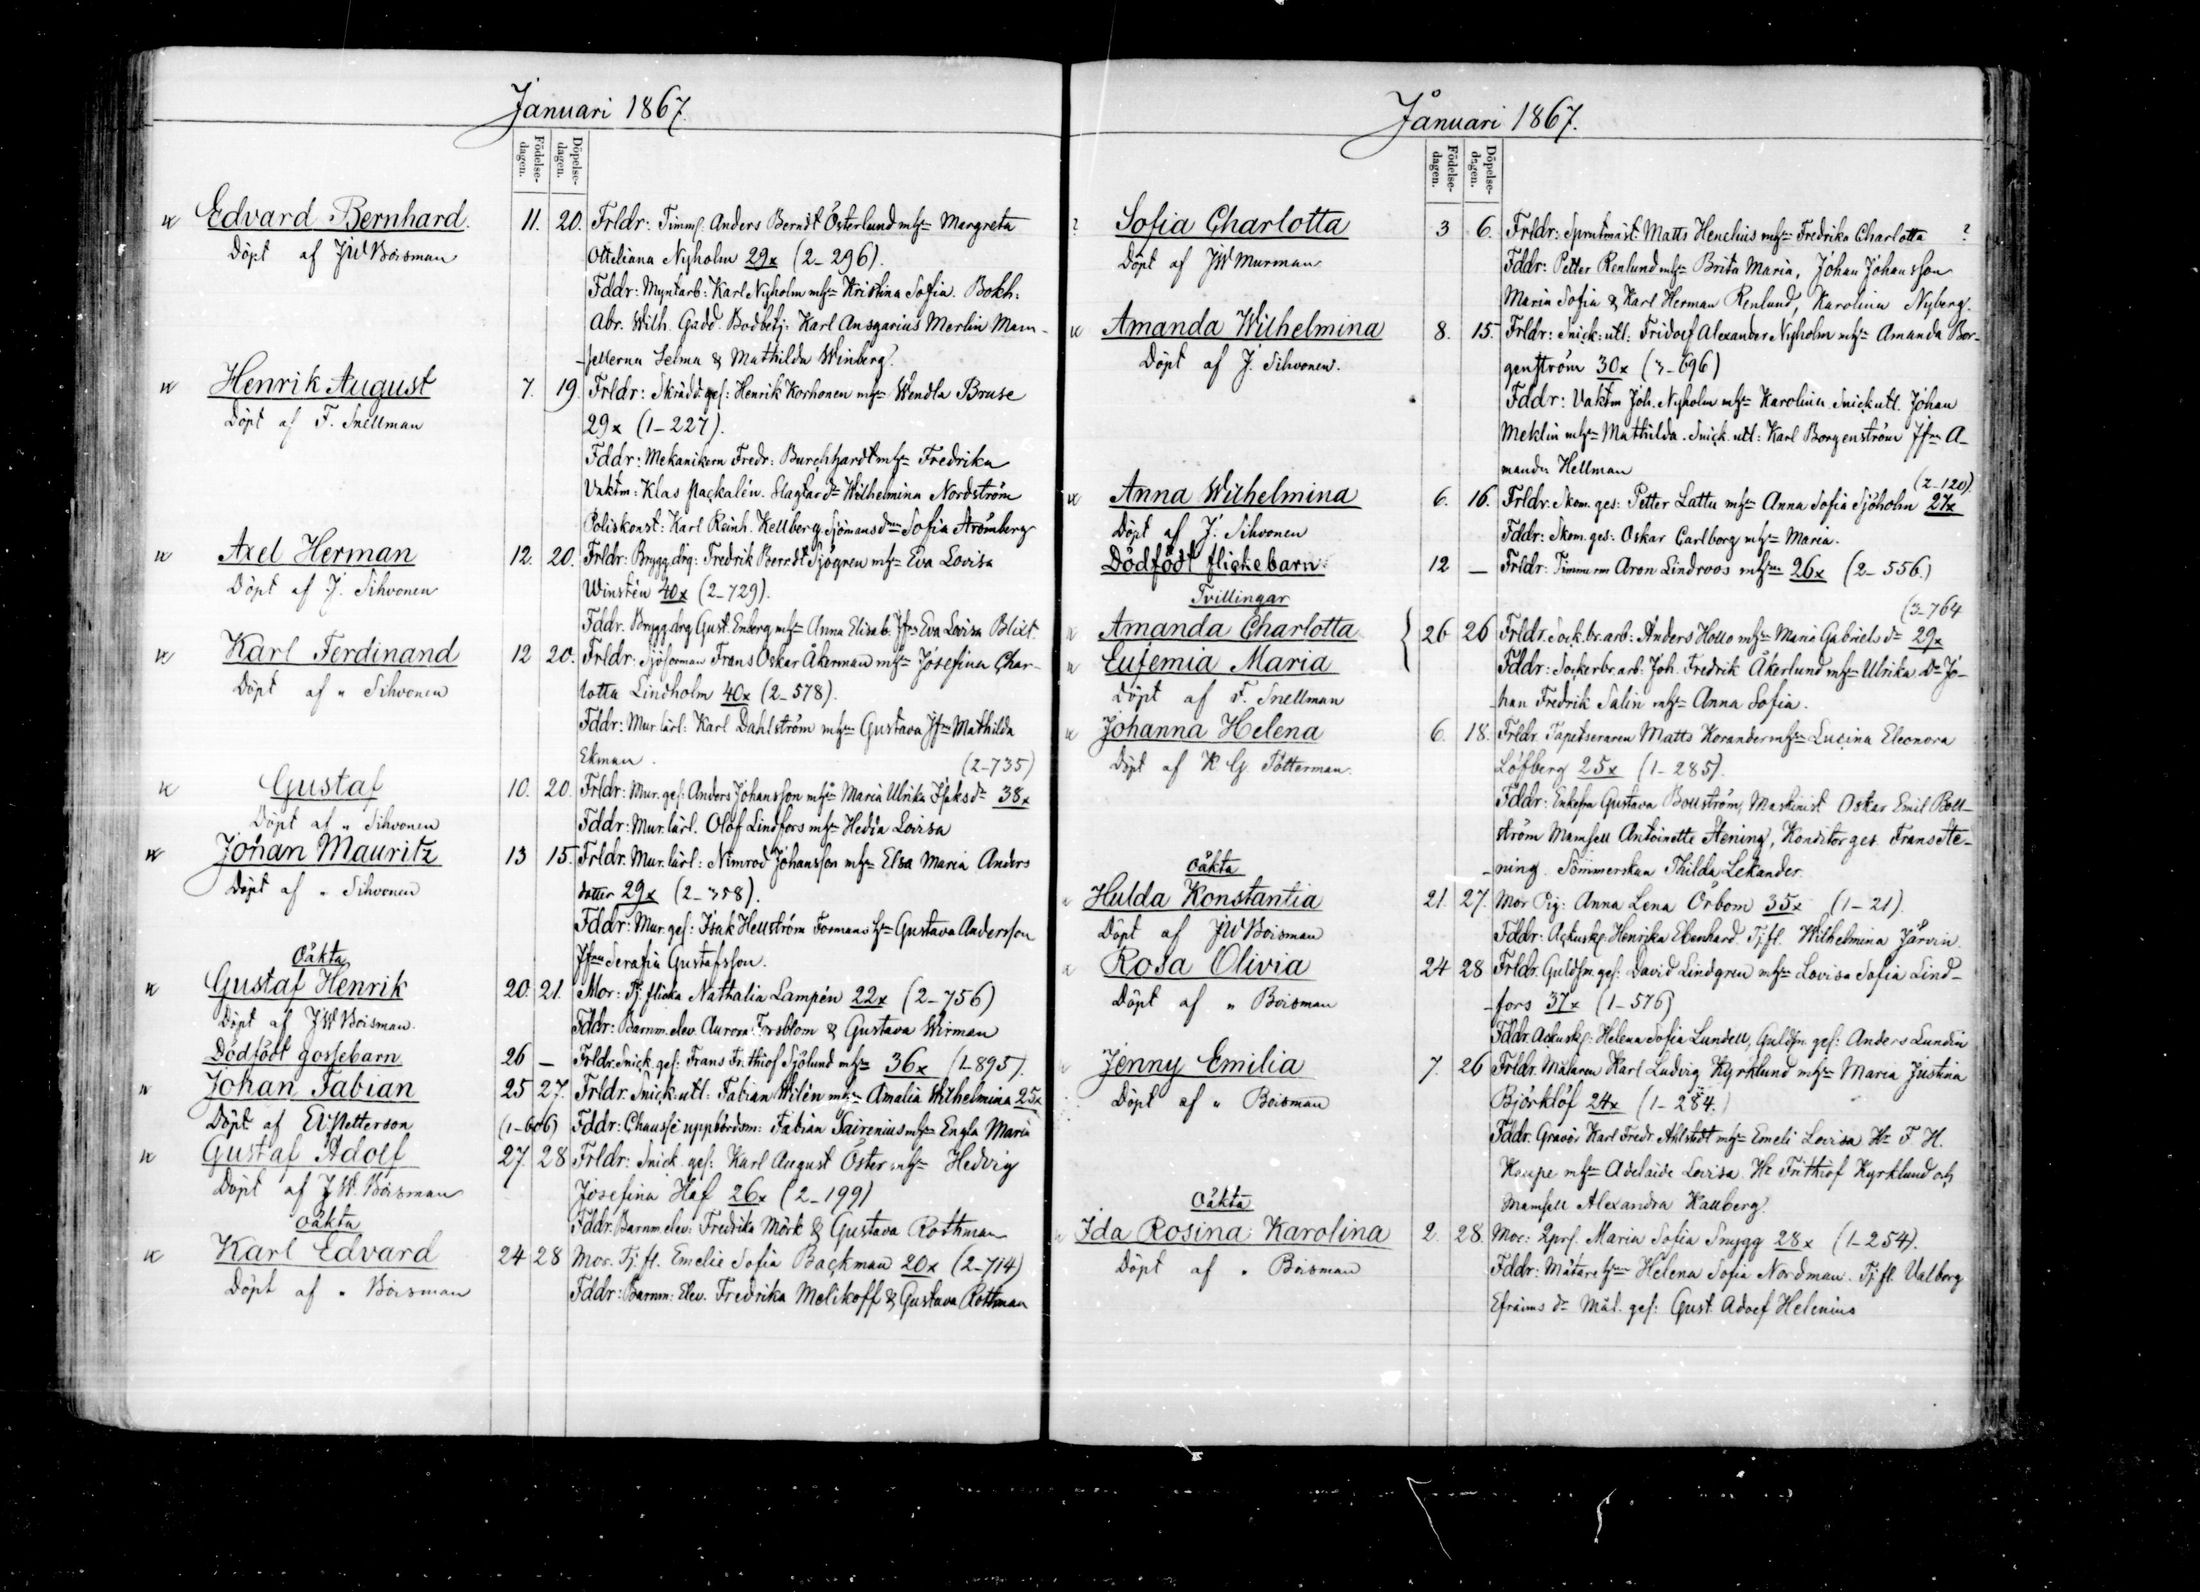 Januari 1867.
Födelse-dagen. Döpelse-dagen.
Edvard Bernhard. 11. 20. Frldr: Timmf. Anders Berndt Österlund mhn Margreta
Döpt af JW Boisman Otteliana Nyholm 29x (2-296).
Fddr: Myntarb: Karl Nyholm mhn Kristina Sofia. Bokh:
Abr. Wilh. Gadd. Bodbetj: Karl Ansgarius Merlin Mam-
sellerna Selma & Mathilda Winberg.
Henrik August 7. 19. Frldr: Skrädd. ges: Henrik Korhonen mhn Wendla Bruse
Döpt af F. Snellman 29x (1-227).
Fddr: Mekanikern Fredr: Burchhardt mhn Fredrika
Vaktm: Klas Packalén. Slagtar dr Wilhelmina Nordström
Poliskonst: Karl Reinh. Kellberg Sjömansdn Sofia Strömberg
Axel Herman 12. 20. Frldr: Brygg. drg: Fredrik Berndt Sjögren mhn Eva Lovisa
Döpt af J. Sihvonen Winstén 40x (2-729).
Fddr. Brygg drg Gust. Enberg mhn Anna Elisab. Jfrn Eva Lovisa Blixt.
Karl Ferdinand 12 20. Frldr: Sjöforman Frans Oskar Åkerman mhn Josefina Char-
Döpt af " Sihvonen lotta Lindholm 40x (2-578).
Fddr: Mur. lärl: Karl Dahlström mhn Gustava Jfrn Mathilda
Ekman. (2-735)
Gustaf 10. 20. Frldr: Mur. ges: Anders Johansson mhn Maria Ulrika Isaksdr 38x
Döpt af " Sihvonen Fddr: Mur. lärl. Olof Lindfors mhn Hedda Lovisa
Johan Mauritz 13 15. Frldr. Mur. lärl: Nimrod Johansson mhn Elsa Maria Anders
Döpt af " Sihvonen dotter 29x (2-358).
Fddr: Mur. ges: Isak Hellström Formans hn Gustava Andersson
Jfrn Serafia Gustafsson.
Oäkta
Gustaf Henrik 20. 21. Mor: Tj. flicka Nathalia Lampén 22x (2-756)
Döpt af JW Boisman. Fddr: Barnm. elev. Aurora Forsblom & Gustava Wirman
Dödfödt gossebarn 26 — Frldr. Snick. ges: Frans Frithiof Sjölund mhn 36x (1-895).
Johan Fabian 25 27. Frldr. Snick. utl: Fabian Wilén mhn Amalia Wilhelmina 25x
Döpt af Petterson (1-606) Fddr: Chaussé uppbördsm: Fabian Sairenius mhn Engla Maria
Gustaf Adolf 27. 28 Frldr: Snick. ges: Karl August Öster mhn Hedvig
Döpt af J.W. Boisman Josefina Haf 26x (2-199)
Fddr. Barnm. elev: Fredrika Mörk & Gustava Rothman
Oäkta
Karl Edvard 24 28 Mor. Tj. fl. Emelie Sofia Backman 20x (2-714)
Döpt af " Boisman Fddr: Barnm: Elev. Fredrika Melikoff & Gustava Rothman
Januari 1867.
Födelse-dagen. Döpelse-dagen.
? Sofia Charlotta 3 6. Frldr: Sprutmäst: Matts Henelius mhn Fredrika Charlotta ?
Döpt af JW Murman Fddr: Petter Renlund mhn Brita Maria, Johan Johansson
Maria Sofia & Karl Herman Renlund, Karolina Nyberg.
Amanda Wilhelmina 8. 15. Frldr: Snick: utl: Fridolf Alexander Nyholm mhn Amanda Bor-
Döpt af J. Sihvonen. genström 30x (3-696)
Fddr: Vaktm Joh. Nyholm mhn Karolina. Snick utl. Johan
Meklin mhn Mathilda. Snick. utl: Karl Borgenström Jfrn A-
manda Hellman (2-120)
Anna Wilhelmina 6. 16. Frldr. Skom. ges: Petter Lattu mhn Anna Sofia Sjöholm 27x
Döpt af J. Sihvonen Fddr: Skom. ges: Oskar Carlborg mhn Maria.
Dödfödt flickebarn: 12 — Frldr: Timmerm Aron Lindroos mhn 26x (2-556.)
Tvillingar (3-764
Amanda Charlotta { 26 26 Frldr. Sock. br. arb: Anders Hollo mhn Maria Gabriels dr 29x
Eufemia Maria Fddr: Sockerbr. arb: Joh. Fredrik Åkerlund mhn Ulrika. Do Jo-
Döpt af F. Snellman han Fredrik Salin mhn Anna Sofia.
Johanna Helena 6. 18. Frldr. Tapetseraren Matts Korander mhn Lucina Eleonora
Döpt af K. G. Tötterman. Löfberg 25x (1-285).
Fddr: Enkefru Gustava Bollström, Maskinist Oskar Emil Boll-
ström Mamsell Antoinette Hening, Konditor ges. Frans He-
ning. Sömmerskan Thilda Lekander.
Oäkta
Hulda Konstantia 21. 27. Mor Pig: Anna Lena Örbom 35x (1-21).
Döpt af JW Boisman Fddr: Ackuskf: Henrika Ebenhard. Tj. fl. Wilhelmina Järvin.
Rosa Olivia 24 28 Frldr. Guldsm. ges: David Lindgren mhn Lovisa Sofia Lind-
Döpt af " Boisman fors 37x (1-576)
Fddr. Ackuskf: Helena Sofia Lundell, Guldsm. ges: Anders Lundin
Jenny Emilia 7. 26 Frldr. Målaren Karl Ludvig Kyrklund mhn Maria Justina
Döpt af " Boisman Björklöf 24x (1-284.)
Fddr. Gravör Karl Fredr Ahlstedt mhn Emeli Lovisa Hr F. H.
Kaupe mhn Adelaide Lovisa. Hr Frithiof Kyrklund och
Mamsell Alexandra Hallberg.
Oäkta
Ida Rosina Karolina 2. 28. Mor: Qprs. Maria Sofia Snygg 28x (1-254).
Döpt af " Boisman Fddr: Mätare hn Helena Sofia Nordman. Tj. fl. Valborg
Efraims dr Mål. ges: Gust. Adolf Helenius